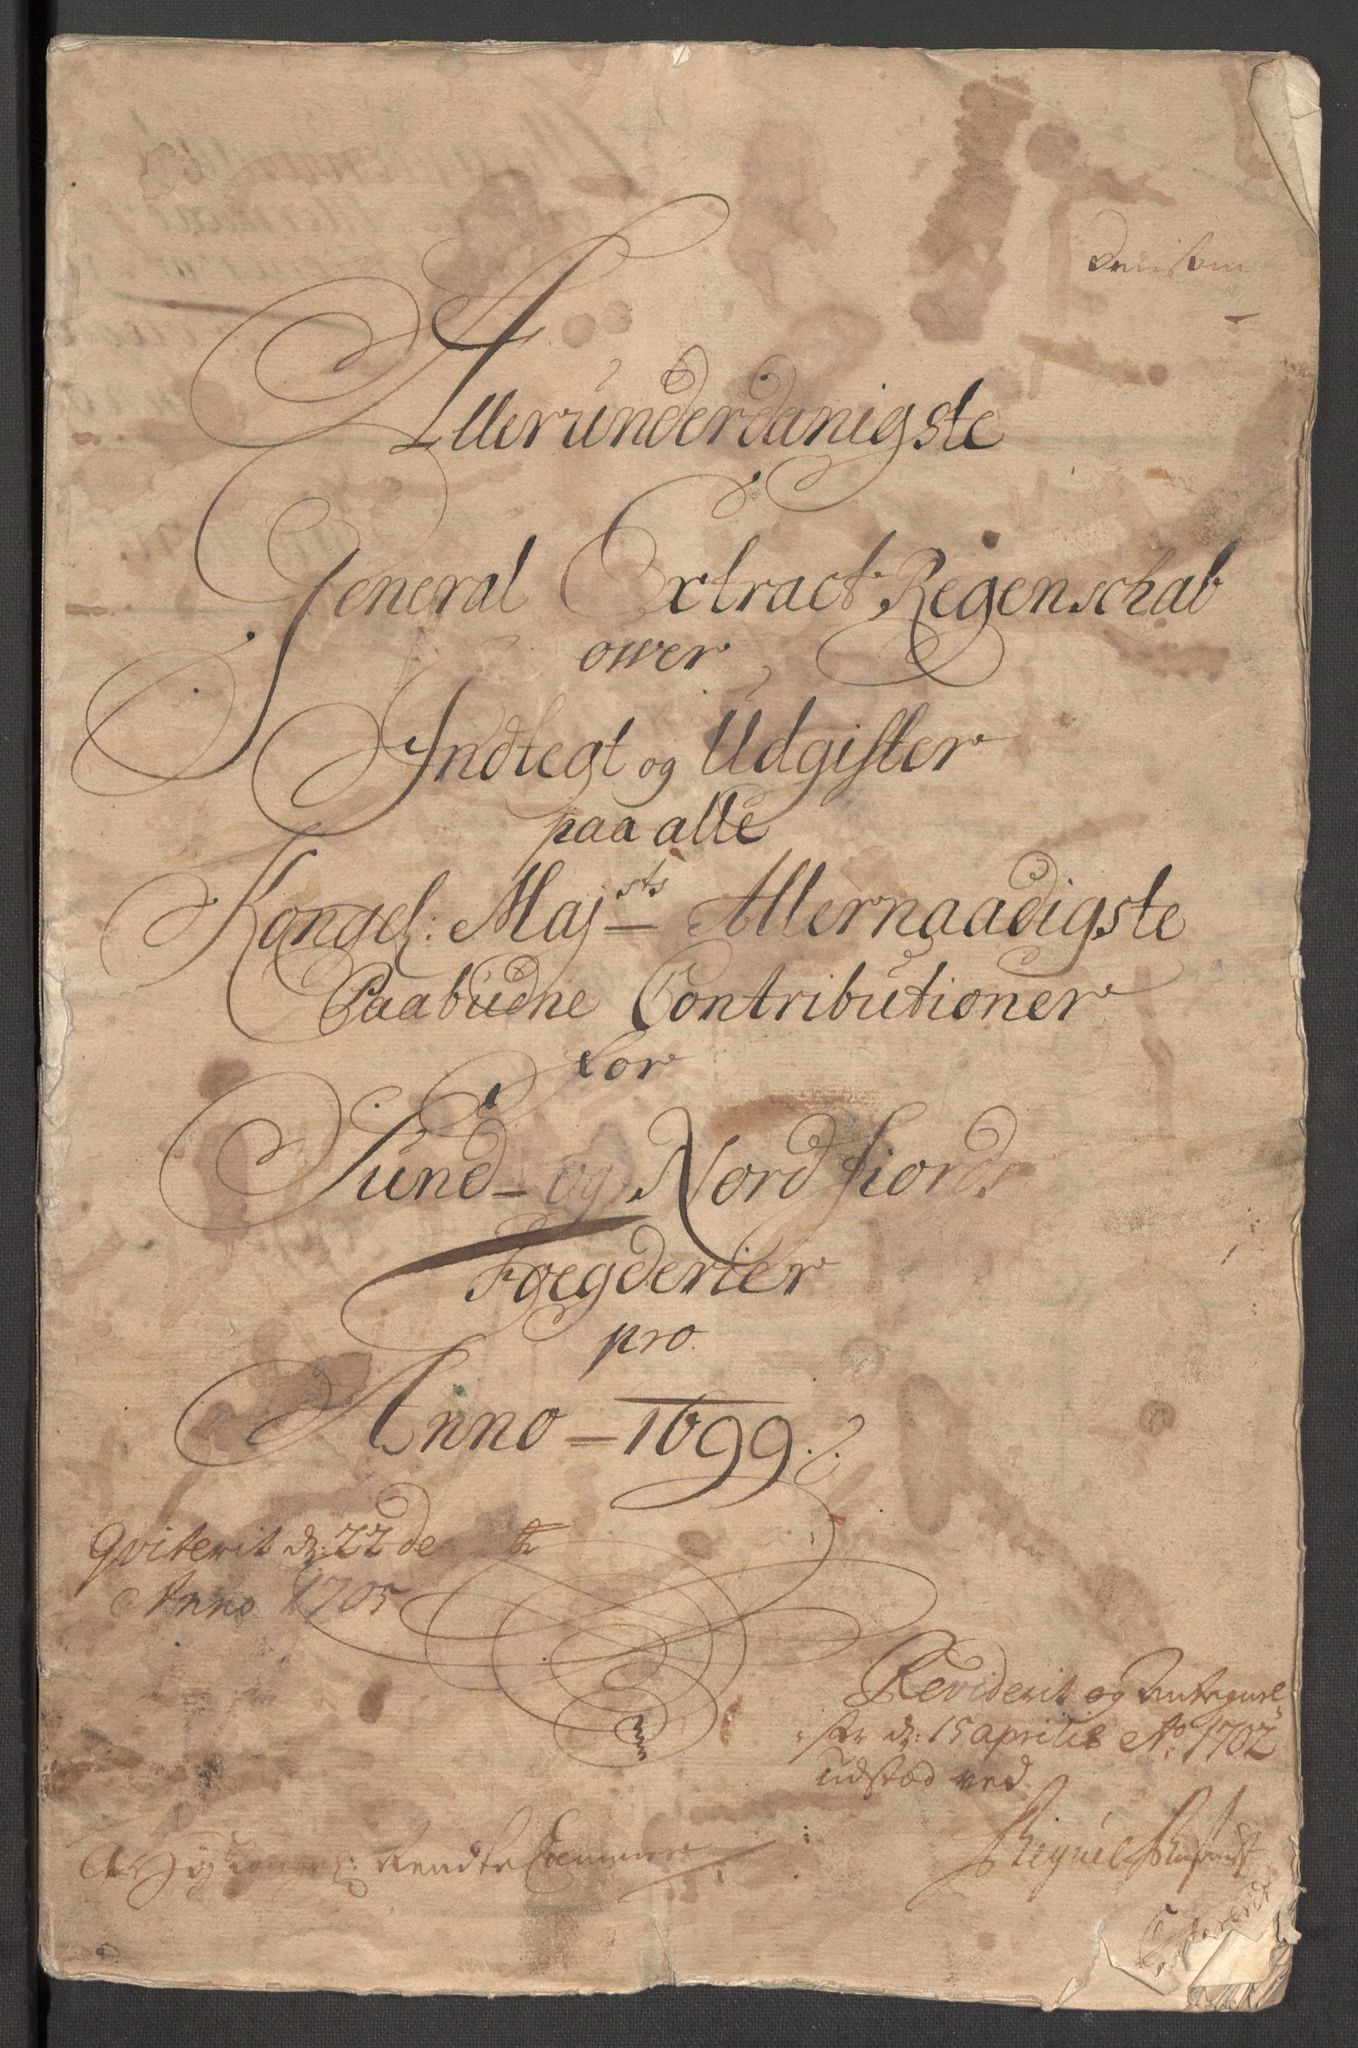 Allerunderdanigste
General Extract Regenschab
ower
Indtegt og Udgifter
paa alle
Kongel: Maj<sup>sts</sup> Allernaadigste
Paabudne Contributioner
for
Sund- og Nordfiords
Foegderier
pro
Anno - 1699
Qviterit d: 22 de
Anno 1705
Reviderit og
d: 15 aprilis Ao. 1702
udsted ved
Rendte Cammer